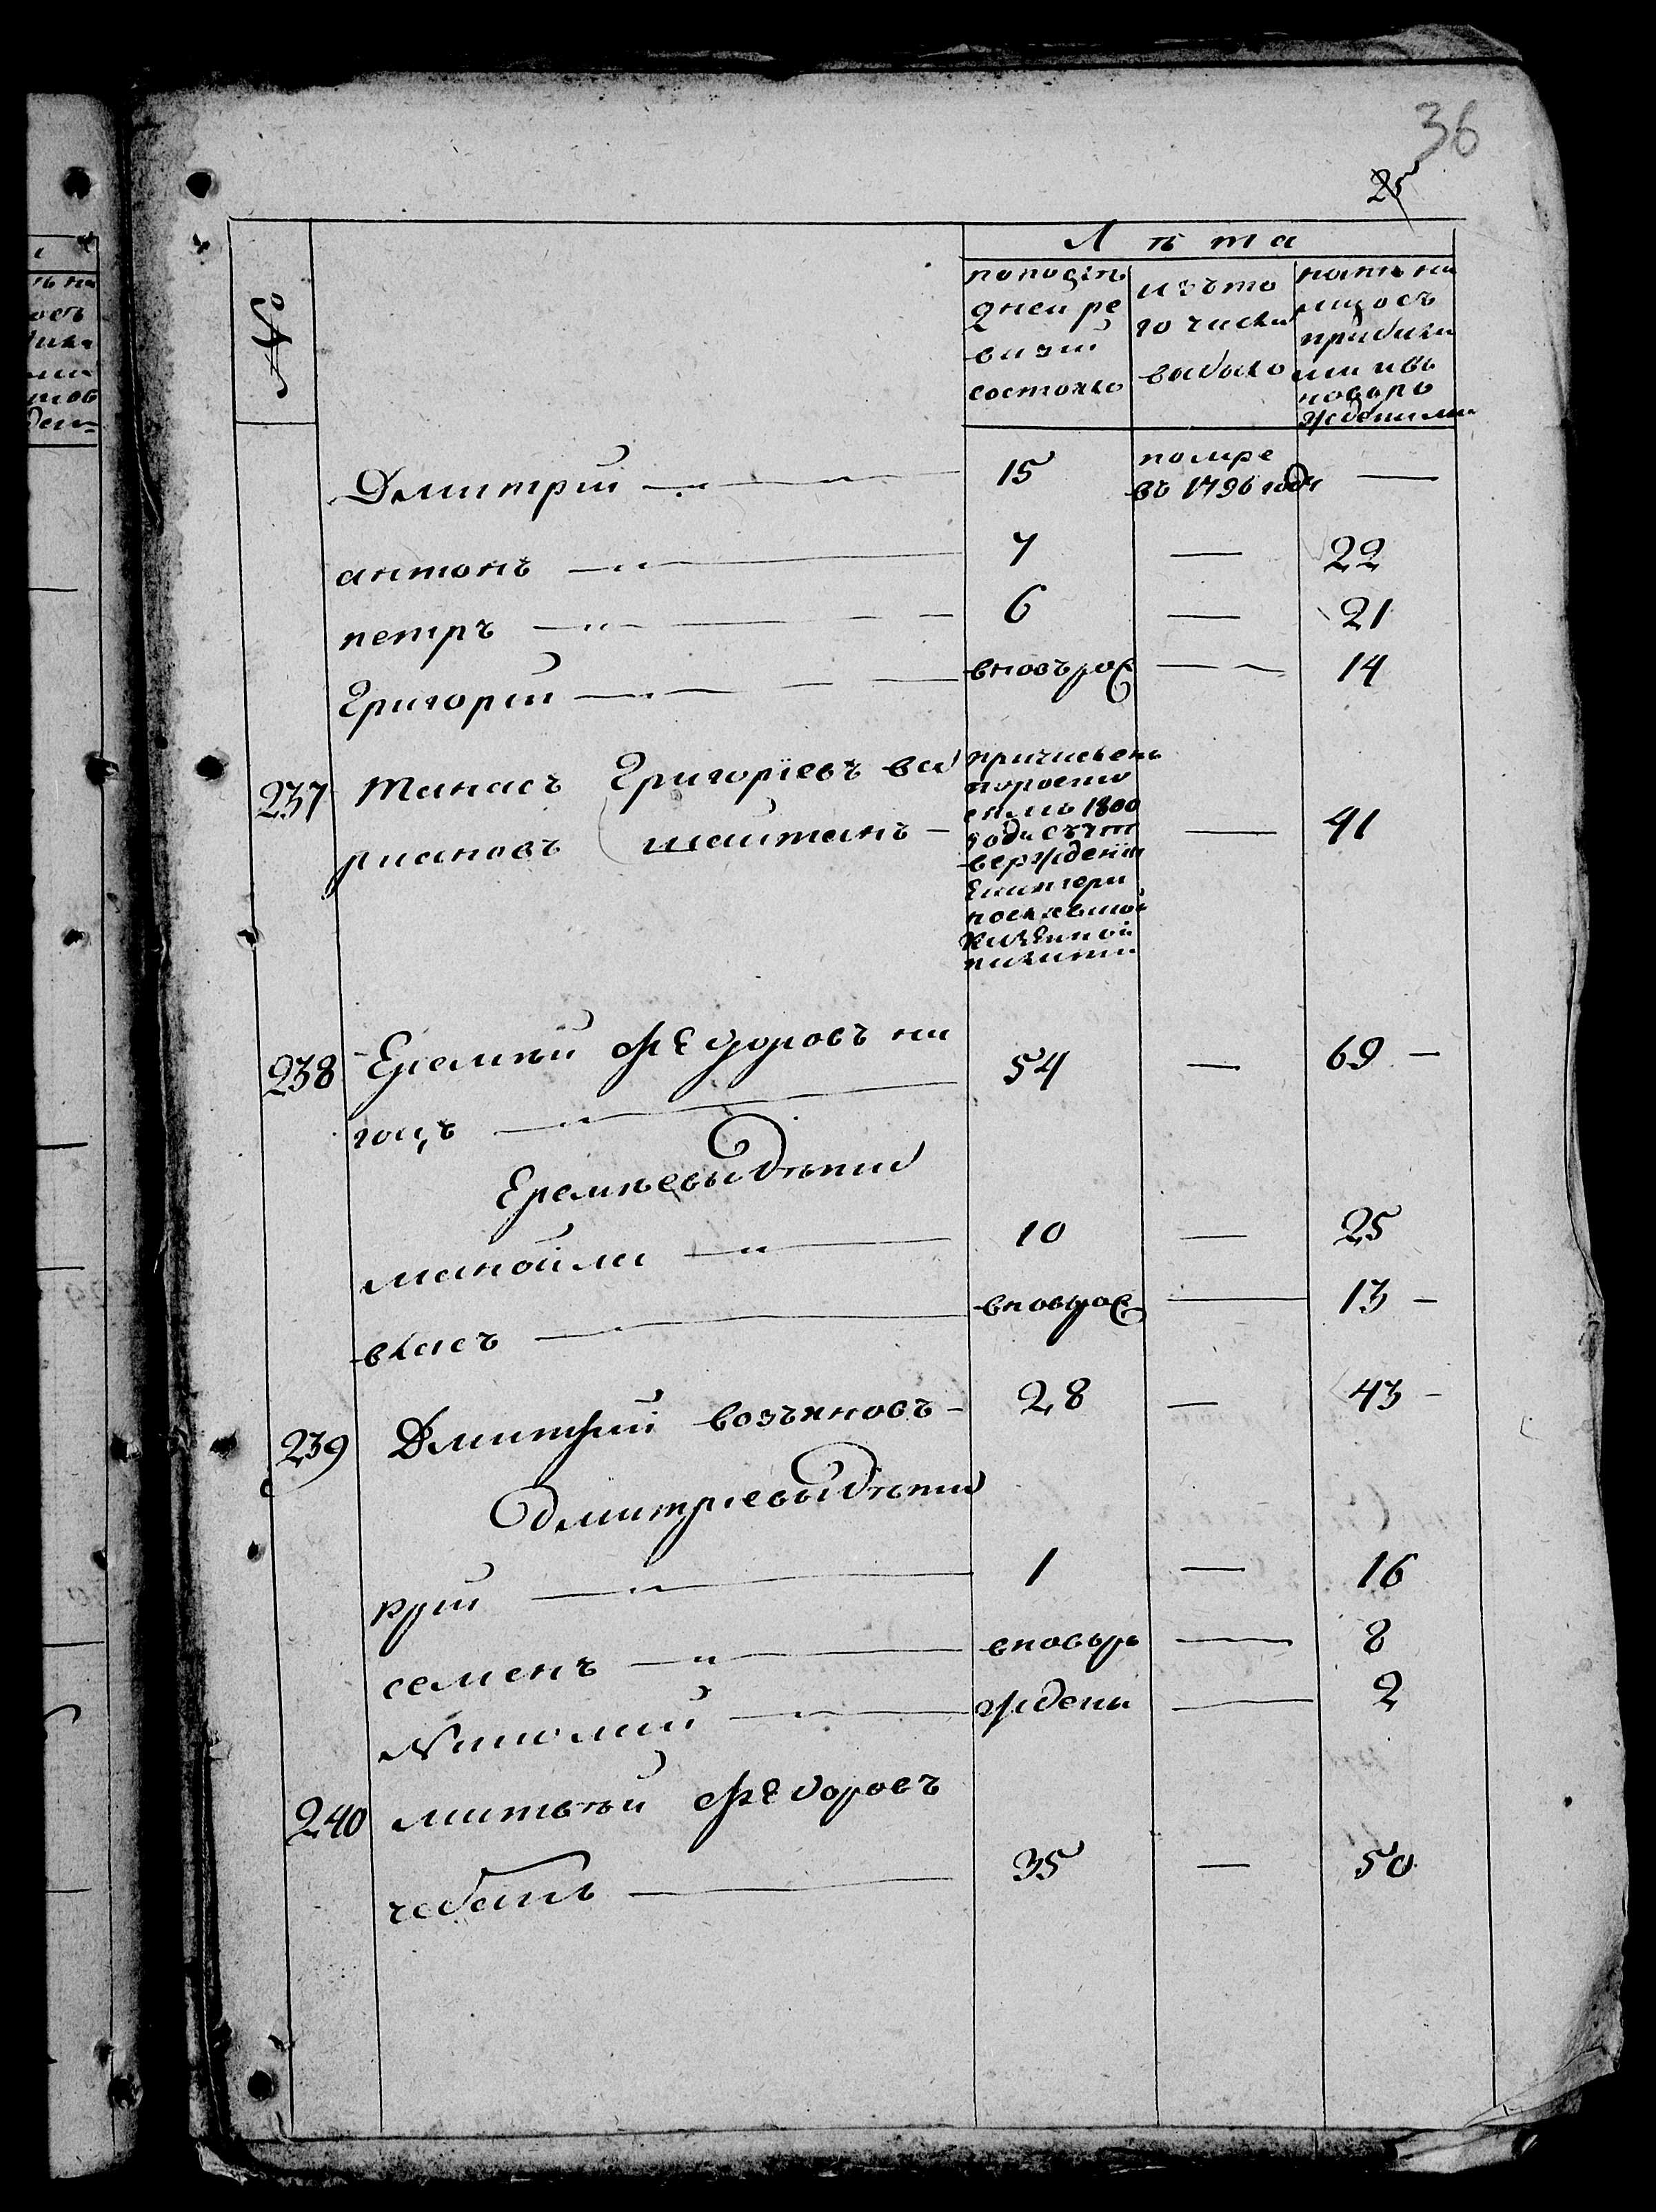 36
25
Лѣта
№
попослѣ
дней ре
визіи
состояло
изъ то
го числа
выбыло
нынѣ на
лицо съ
прибылы
ми и въ
новоро
жденными
Дмитрій 15 помре
въ 1796 годѣ —
антонъ 7 — 22
петръ 6 — 21
Григорій вновърож — 14
237 танасъ Григорїевъ ва
рлановъ шаитанъ — 41
причисленъ
поревизи
1800
года съ ут
вержденія
Екатери
нославской
казенной
палаты
238 Еремѣй Ѳедоровъ на
гоцъ 54 — 69 —
Еремѣевы дѣти
манойла 10 — 25
власъ вновърож — 13 —
239 Дмитрій возъяновъ 28 — 43 —
дмитріевы дѣти
1 — 16
семенъ вновьро — 8
Николай ждены — 2
240 матвѣй Ѳедоровъ
чабанъ 35 — 50